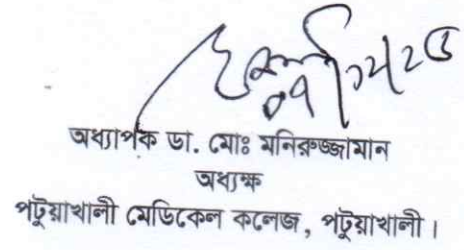 ০৭/১২/২৫
অধ্যাপক ডা. মোঃ মনিরুজ্জামান
অধ্যক্ষ
পটুয়াখালী মেডিকেল কলেজ, পটুয়াখালী।